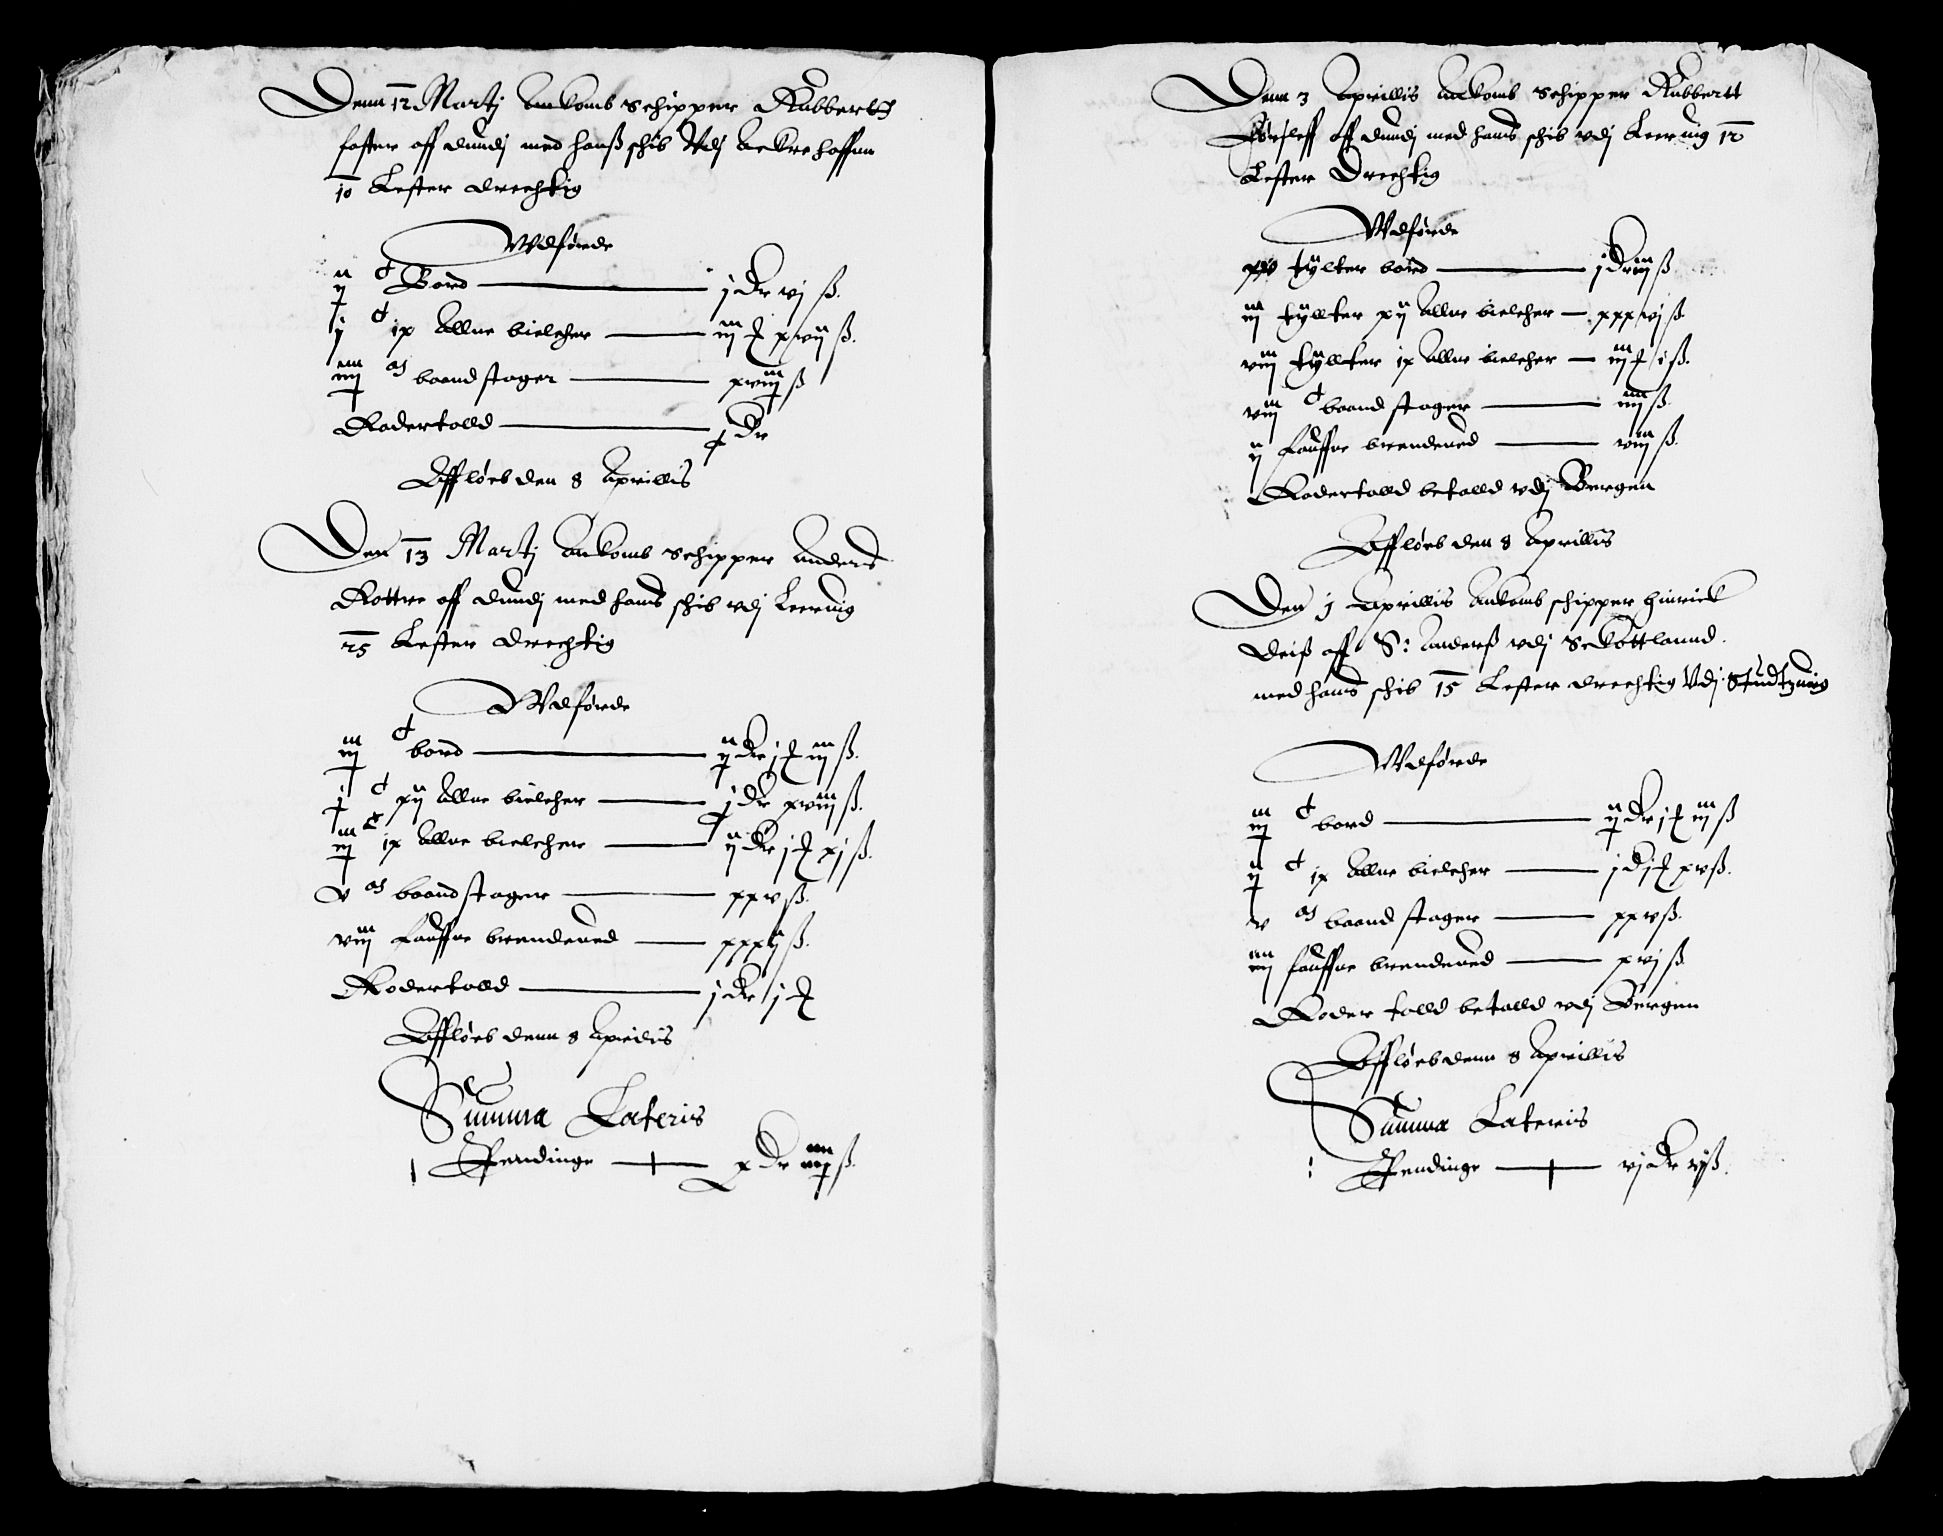 Denn 12 Martj Ankomb Schipper Rubbertt
foster aff dundj med hanß schib Vdj Aekre haffnn
10 Lester drechtig
Wdførde
ij c Bord — j dr vj ß.
j c ix Allne bielcher — iij ℥ xvij ß.
iiij as baandstager — xviij ß
Rodertolld — j dr
Affløeb den 8 Aprillis
Den 13 Martj Ankomb Schipper Anders
Rottre aff dundj med hans schib vdj Leervig
25 Lester drechtig
Wdførde
iij c bord — ij dr j ℥ iij ß.
j c xij Allne bielcher — j dr xviij ß.
iij c ix Allne bielchenn — ij dr j ℥ xj ß.
v as baandstagenn — xxv ß.
viij fauffne brendeued — xxxij ß.
Rodertolld — j dr j ℥
Affløeb denn 8 Aprilis
Summa Lateris
Pendinge — x dr iiij ß.
Denn 3 Aprillis Ankomb Schipper Rubbertt
aff dundj med hans schib vdj Leervig 12
Lester Drechtig
Wdførde
xv tylter bord — j dr iij ß
iij tyllter xij Allne bielcher — xxxvj ß
viij tyllter ix Allne bielcher — iij ℥ i ß.
viij c baand stager — iiij ß.
ij fauffne brendeued — viij ß.
Rodertolld betalld vdj Bergen
Affløeb den 8 Aprillis
Den j Aprillis Ankomb schipper hinrick
Deiß aff S: Anderß vdj Sckottlannd.
med hans schib 15 Lester drechtig Vdj
Wdførde
iij c bord — ij dr j ℥ iij ß
ij c ix Allne bielcher — j d j ℥ xv ß.
v as baand stager — xxv ß.
iiij fauffne brendeued — xvj ß
Roder tolld betalld vdj Bergen
Affløeb denn 8 Aprillis
Summa Lateris
Pendinge — vj dr vij ß.